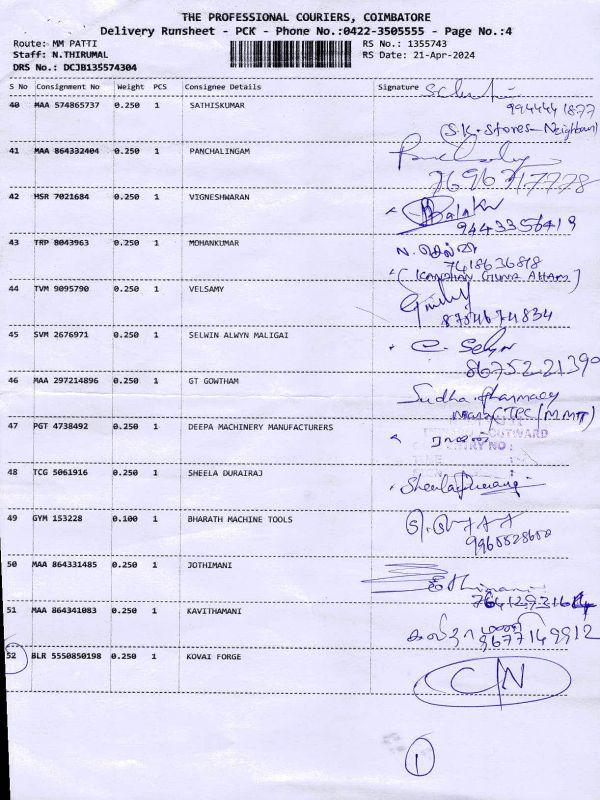 THE PROFESSIONAL COURIERS, COIMBATORE
Delivery Runsheet - PCK - Phone No.:0422-3505555 - Page No.:4
Route: MM PATTI RS No.: 1355743
Staff: N.THIRUMAL RS Date: 21-Apr-2024
DRS No.: DCJB135574304
S No Consignment No Weight PCS Consignee Details Signature
40 MAA 574865737 0.250 1 SATHISKUMAR
9944441877
(S.K. Stores-Neighbour)
41 MAA 864332404 0.250 1 PANCHALINGAM
7696717778
42 HSR 7021684 0.250 1 VIGNESHWARAN
9443356419
43 TRP 8043963 0.250 1 MOHANKUMAR
7418636818
44 TVM 9095790 0.250 1 VELSAMY
8754674834
45 SVM 2676971 0.250 1 SELWIN ALWYN MALIGAI
86752 21390
46 MAA 297214896 0.250 1 GT GOWTHAM
Sudha pharmacy
near CTEC/MMTT)
47 PGT 4738492 0.250 1 DEEPA MACHINERY MANUFACTURERS
48 TCG 5061916 0.250 1 SHEELA DURAIRAJ
49 GYM 153228 0.100 1 BHARATH MACHINE TOOLS
50 MAA 864331485 0.250 1 JOTHIMANI
51 MAA 864341083 0.250 1 KAVITHAMANI
9677149912
52 BLR 5550850198 0.250 1 KOVAI FORGE
C/N
1